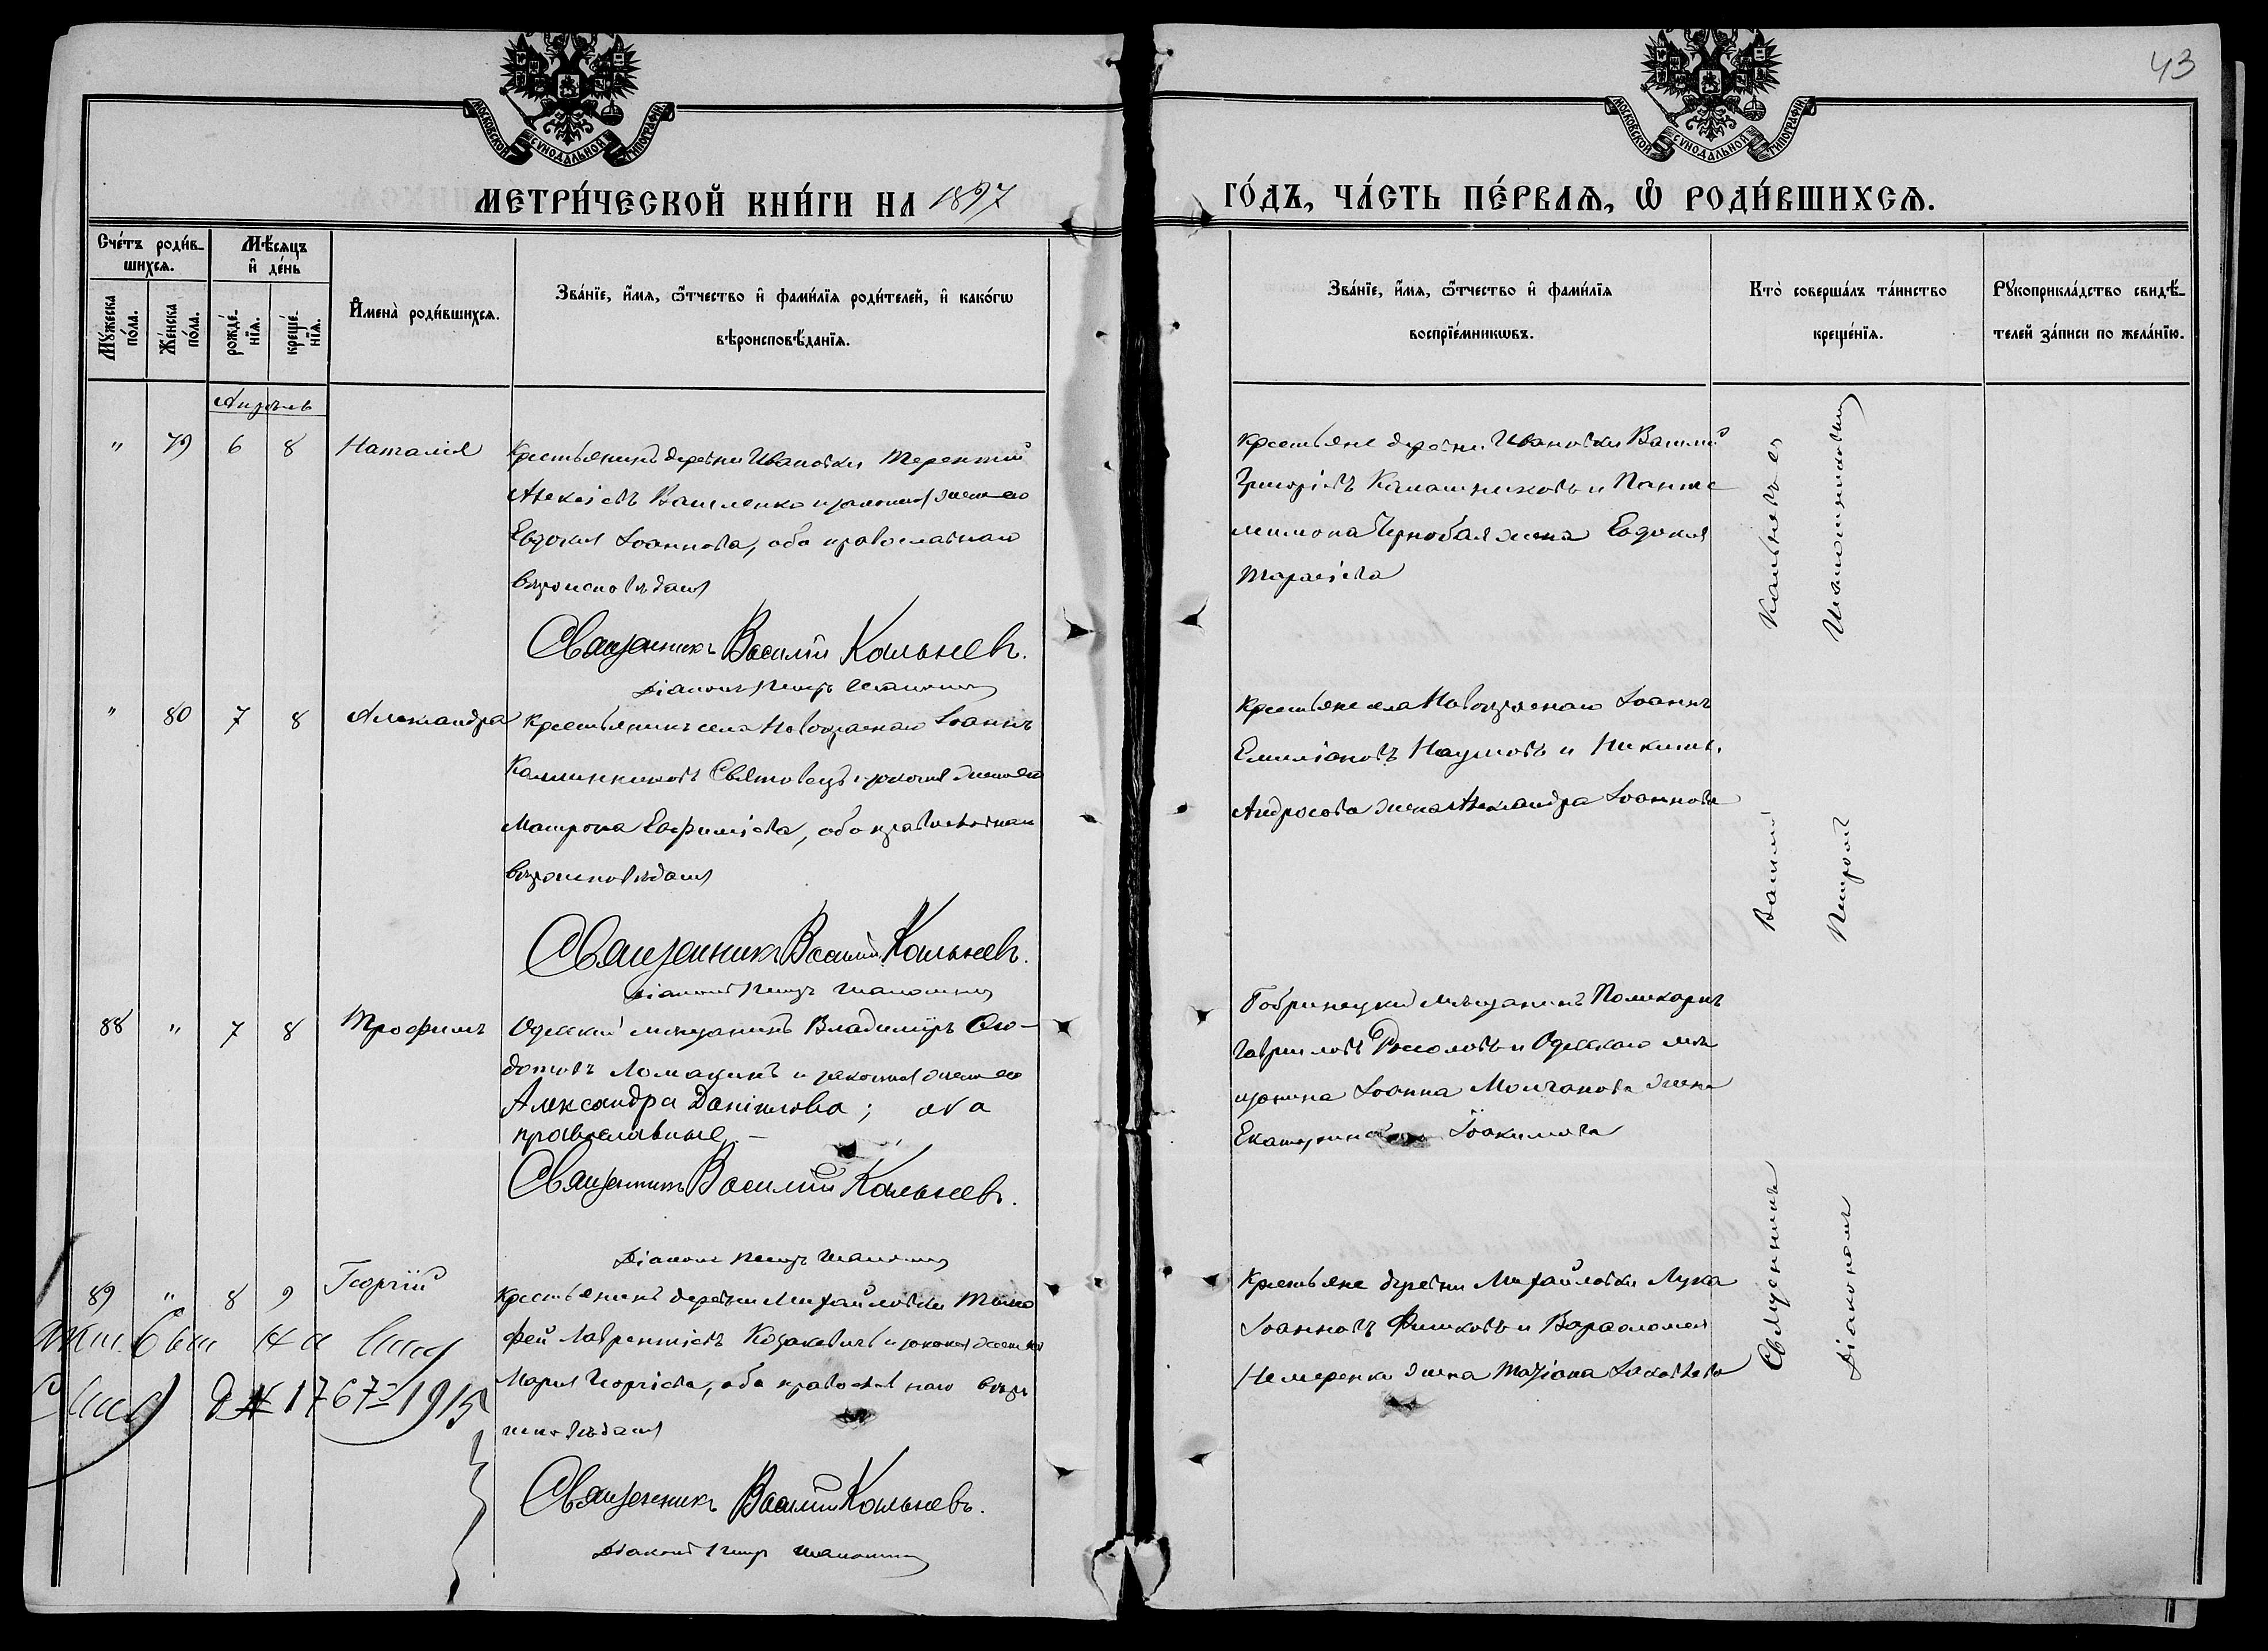 43
МОСКОВСКОЙ СѴНОДАЛЬНОЙ ТИПОГРАФІИ
МОСКОВСКОЙ СѴНОДАЛЬНОЙ ТИПОГРАФІИ
МЕТРИ́ЧЕСКОЙ КНИ́ГИ НА 1897 ГО́ДЪ, ЧА́СТЬ ПЕ́РВАѦ, Ѡ РОДИ́ВШИХСѦ.
Сче́тъ роди́в-
шихсѧ.
Мꙋ́жеска по́ла.
Же́нска по́ла.
Мѣ́сѧцъ и҆ де́нь
рожде́-
нїѧ.
креще́-
нїѧ.
И҆мена̀ роди́вшихсѧ.
Зва́нїе, и҆́мѧ, ѻ҆́тчество и҆ фами́лїѧ роди́телей, и҆ како́гѡ
вѣроисповѣ́данїѧ.
Зва́нїе, и҆́мѧ, ѻ҆́тчество и҆ фами́лїѧ
воспрїе́мникѡвъ.
Кто̀ соверша́лъ та́инство
креще́нїѧ.
Рꙋкоприкла́дство свидѣ́-
телей за́писи по жела́нїю.
Апрѣль
" 79 6 8 Наталія
Крестьянинъ деревни Ивановки Терентій
Алексіевъ Василенко и законная жена его
Евдокія Іоаннова, оба православнаго
вѣроисповѣданія
Священникъ Василій Кольневъ.
Діаконъ Петръ
Крестьяне деревни Ивановки Василій
Григоріевъ Калашниковъ и Панте
лимона Чернобая жена Евдокія
Тарасіева
" 80 7 8 Александра
Крестьянинъ села Новокраснаго Іоаннъ
Каллинниковъ Святовецъ и законная жена его
Матрона Евфиміева, оба православнаго
вѣроисповѣданія
Священникъ Василій Кольневъ.
Діаконъ Петръ
Крестьяне села Новокраснаго Іоаннъ
Емиліановъ Наумовъ и Никиты
Андросова жена Александра Іоаннова
88 " 7 8 Трофимъ
Одесскій мещанинъ Владиміръ Ѳео-
дотовъ Ломакинъ и законная жена его
Александра Даніилова; оба
православные. –
Священникъ Василій Кольневъ.
Діаконъ Петръ
Бобринецкій мѣщанинъ Поликарпъ
Гавриловъ и Одесскаго мѣ
щанина Іоанна Молчанова жена
Екатерина Іоакимова
89 " 8 9 Георгій
Крестьянинъ деревни Михайловки Тимо
фей Лаврентіевъ Козакевичъ и законная жена его
Марія Георгіева, оба православнаго вѣро
исповѣданія
Священникъ Василій Кольневъ.
Діаконъ Петръ
Крестьяне деревни Михайловки Лука
Іоанновъ Фишковъ и Варѳоломея
Немеренки жена Татіана Іаковлева
№ 1767 1915
Священникъ Василій Кольневъ съ
Діакономъ Петромъ